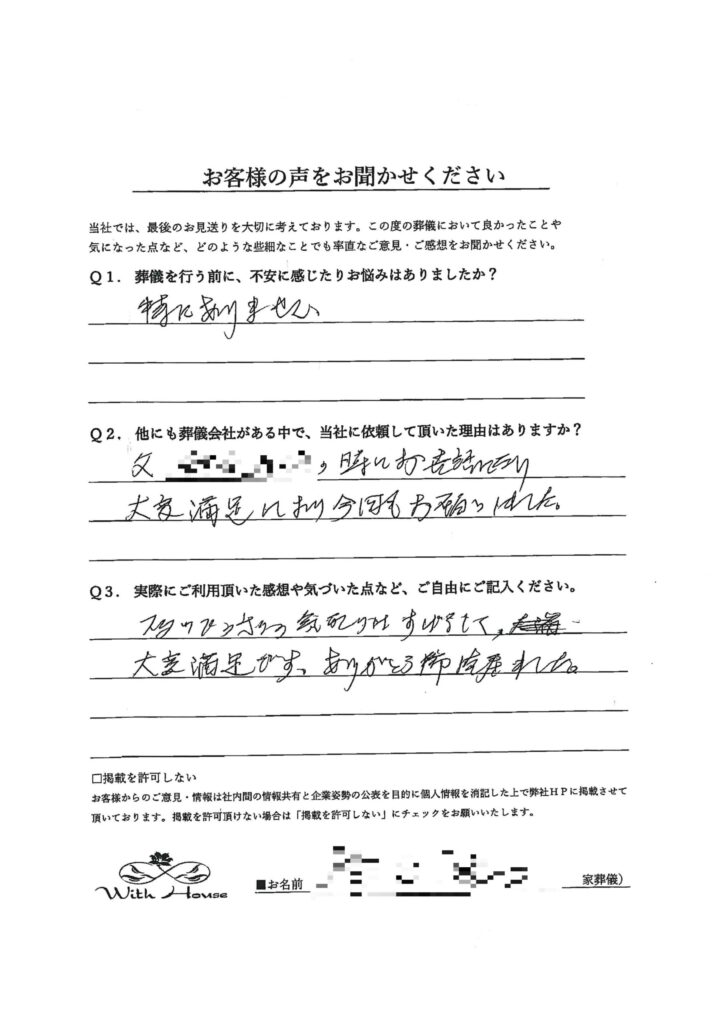 お客様の声をお聞かせください
当社では、最後のお見送りを大切に考えております。この度の葬儀において良かったことや
気になった点など、どのような些細なことでも率直なご意見・ご感想をお聞かせください。
Q1. 葬儀を行う前に、不安に感じたりお悩みはありましたか？
特にありません
Q2. 他にも葬儀会社がある中で、当社に依頼して頂いた理由はありますか？
父 の時にお世話になり
大変満足しており今回もお願いしました。
Q3. 実際にご利用頂いた感想や気づいた点など、ご自由にご記入ください。
スタッフさんの気配りは
大変満足です、ありがとう御座ました。
□掲載を許可しない
お客様からのご意見・情報は社内間の情報共有と企業姿勢の公表を目的に個人情報を消記した上で弊社HPに掲載させて
頂いております。掲載を許可頂けない場合は「掲載を許可しない」にチェックをお願いいたします。
With House
■お名前 家葬儀）